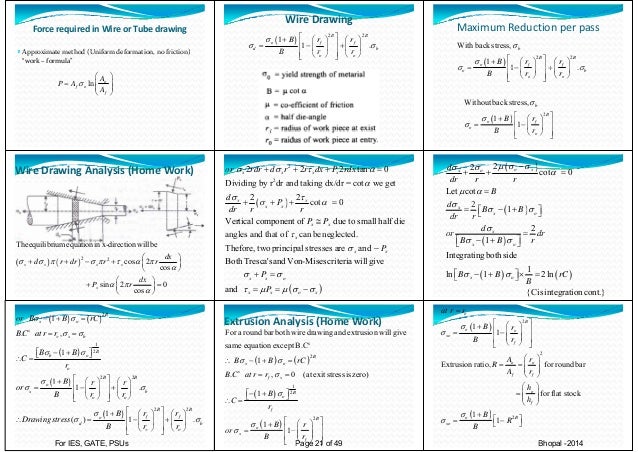 Force required in Wire or Tube drawing
Approximate method (Uniform deformation, no friction)
"work – formula"
P = A_f σ_o ln(A_o / A_f)
Wire Drawing
σ_d = σ_o(1 + B)/B [1 − (r_f/r_o)^2B] + (r_f/r_o)^2B .σ_b
σ_o = yield strength of metarial
B = μ cot α
μ = co-efficient of friction
α = half die-angle
r_f = raidus of work piece at exist
r_o = raidus of work piece at entry.
Maximum Reduction per pass
With back stress, σ_b
σ_o = σ_o(1 + B)/B [1 − (r_f/r_o)^2B] + (r_f/r_o)^2B .σ_b
Without back stress, σ_b
σ_o = σ_o(1 + B)/B [1 − (r_f/r_o)^2B]
Wire Drawing Analysis (Home Work)
The equilibrium equation in x-direction will be
(σ_x + dσ_x)π(r + dr)² − σ_x πr² + τ_x cos α (2πr dx/cos α)
+ P_x sin α (2πr dx/cos α) = 0
or σ_x 2rdr + dσ_x r² + 2rτ_x dx + P_x 2rdx tan α = 0
Dividing by r²dr and taking dx/dr = cot α we get
dσ_x/dr + 2/r (σ_x + P_x) + 2τ_x/r cot α = 0
Vertical component of P_x ≅ P_x due to small half die
angles and that of τ_x can be neglected.
Thefore, two principal stresses are σ_x and − P_x
Both Tresca's and Von-Mises criteria will give
σ_x + P_x = σ_o
and τ_x = μP_x = μ(σ_o − σ_x)
dσ_x/dr + 2σ_o/r + 2μ(σ_o − σ_x)/r cot α = 0
Let μcot α = B
dσ_x/dr = 2/r [Bσ_x − (1 + B)σ_o]
or dσ_x/[Bσ_x − (1 + B)σ_o] = 2/r dr
Integrating both side
ln[Bσ_x − (1 + B)σ_o] × 1/B = 2 ln(rC)
{C is integration cont.}
or Bσ_x − (1 + B)σ_o = (rC)^2B
B.C^s at r = r_o, σ_x = σ_b
∴ C = [Bσ_b − (1 + B)σ_o]^(1/2B) / r_o
or σ_x = σ_o(1 + B)/B [1 − (r/r_o)^2B] + (r/r_o)^2B .σ_b
∴ Drawing stress (σ_d) = σ_o(1 + B)/B [1 − (r_f/r_o)^2B] + (r_f/r_o)^2B .σ_b
Extrusion Analysis (Home Work)
For a round bar both wire drawing and extrusion will give
same equation except B.C^s
∴ Bσ_x − (1 + B)σ_o = (rC)^2B
B.C^s at r = r_f, σ_x = 0 (at exit stress is zero)
∴ C = [−(1 + B)σ_o]^(1/2B) / r_f
or σ_x = σ_o(1 + B)/B [1 − (r/r_f)^2B]
at r = r_o
σ_xo = σ_o(1 + B)/B [1 − (r_o/r_f)^2B]
Extrusion ratio, R = A_o/A_f = (r_o/r_f)² for round bar
= (h_o/h_f) for flat stock
σ_xo = σ_o(1 + B)/B [1 − R^B]
For IES, GATE, PSUs
Page 21 of 49
Bhopal -2014